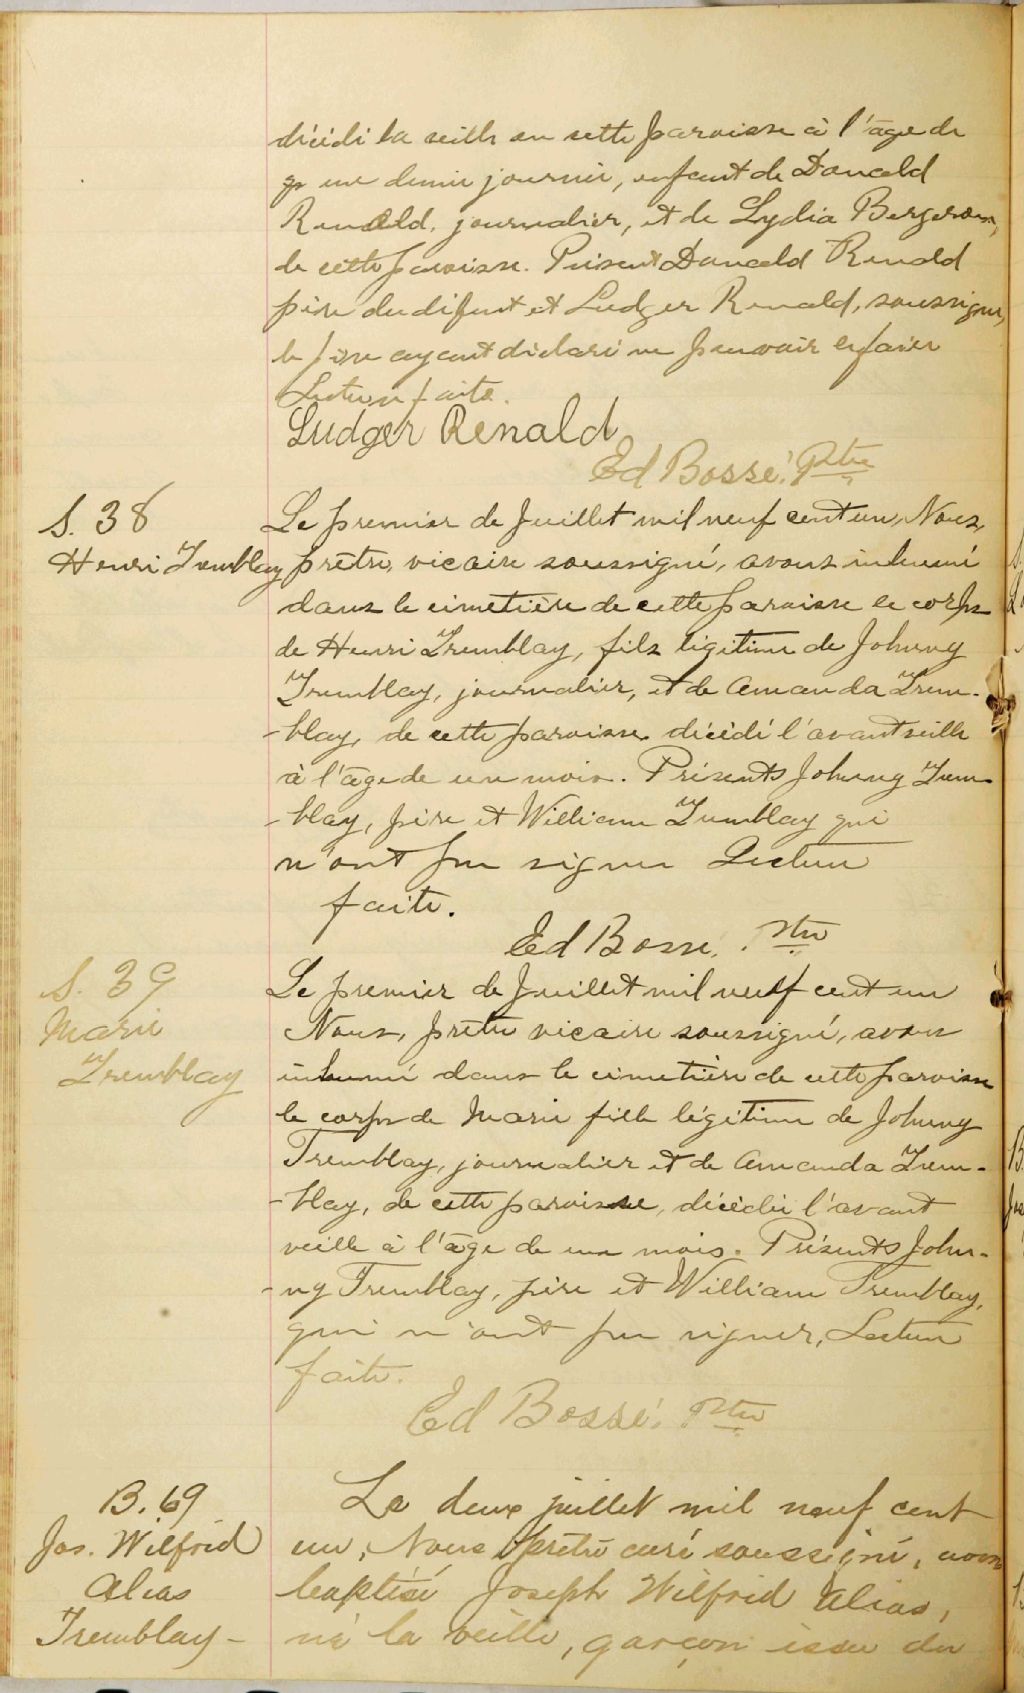 décédé la veille en cette paroisse à l'âge de
une demie journée, enfant de Donald
Renald, journalier, et de Lydia Bergeron,
de cette paroisse. Présent Donald Renald
père du défunt et Ludger Renald, soussigné,
le père ayant déclaré ne pouvoir le faire
Lecture faite.
Ludger Renald
Ed Bossé, Ptre
S. 38
Henri Tremblay
Le premier de Juillet mil neuf cent un, Nous,
prêtre, vicaire soussigné, avons inhumé
dans le cimetière de cette paroisse le corps
de Henri Tremblay, fils légitime de Johnny
Tremblay, journalier, et de Amanda Trem-
-blay, de cette paroisse décédé l'avant veille
à l'âge de un mois. Présents Johnny Trem-
-blay, père et William Tremblay qui
n'ont pu signer Lecture
faite.
Ed Bossé, Ptre
S. 39
Marie
Tremblay
Le premier de Juillet mil neuf cent un
Nous, prêtre vicaire soussigné, avons
inhumé dans le cimetière de cette paroisse
le corps de Marie fille légitime de Johnny
Tremblay, journalier et de Amanda Trem-
-blay, de cette paroisse, décédée l'avant
veille à l'âge de un mois. Présents John-
-ny Tremblay, père et William Tremblay,
qui n'ont pu signer, Lecture
faite.
Ed Bossé, Ptre
B. 69
Jos. Wilfrid
Alias
Tremblay-
Le deux juillet mil neuf cent
un, Nous prêtre curé soussigné, avons
baptisé Joseph Wilfrid Alias,
né la veille, garçon issu du